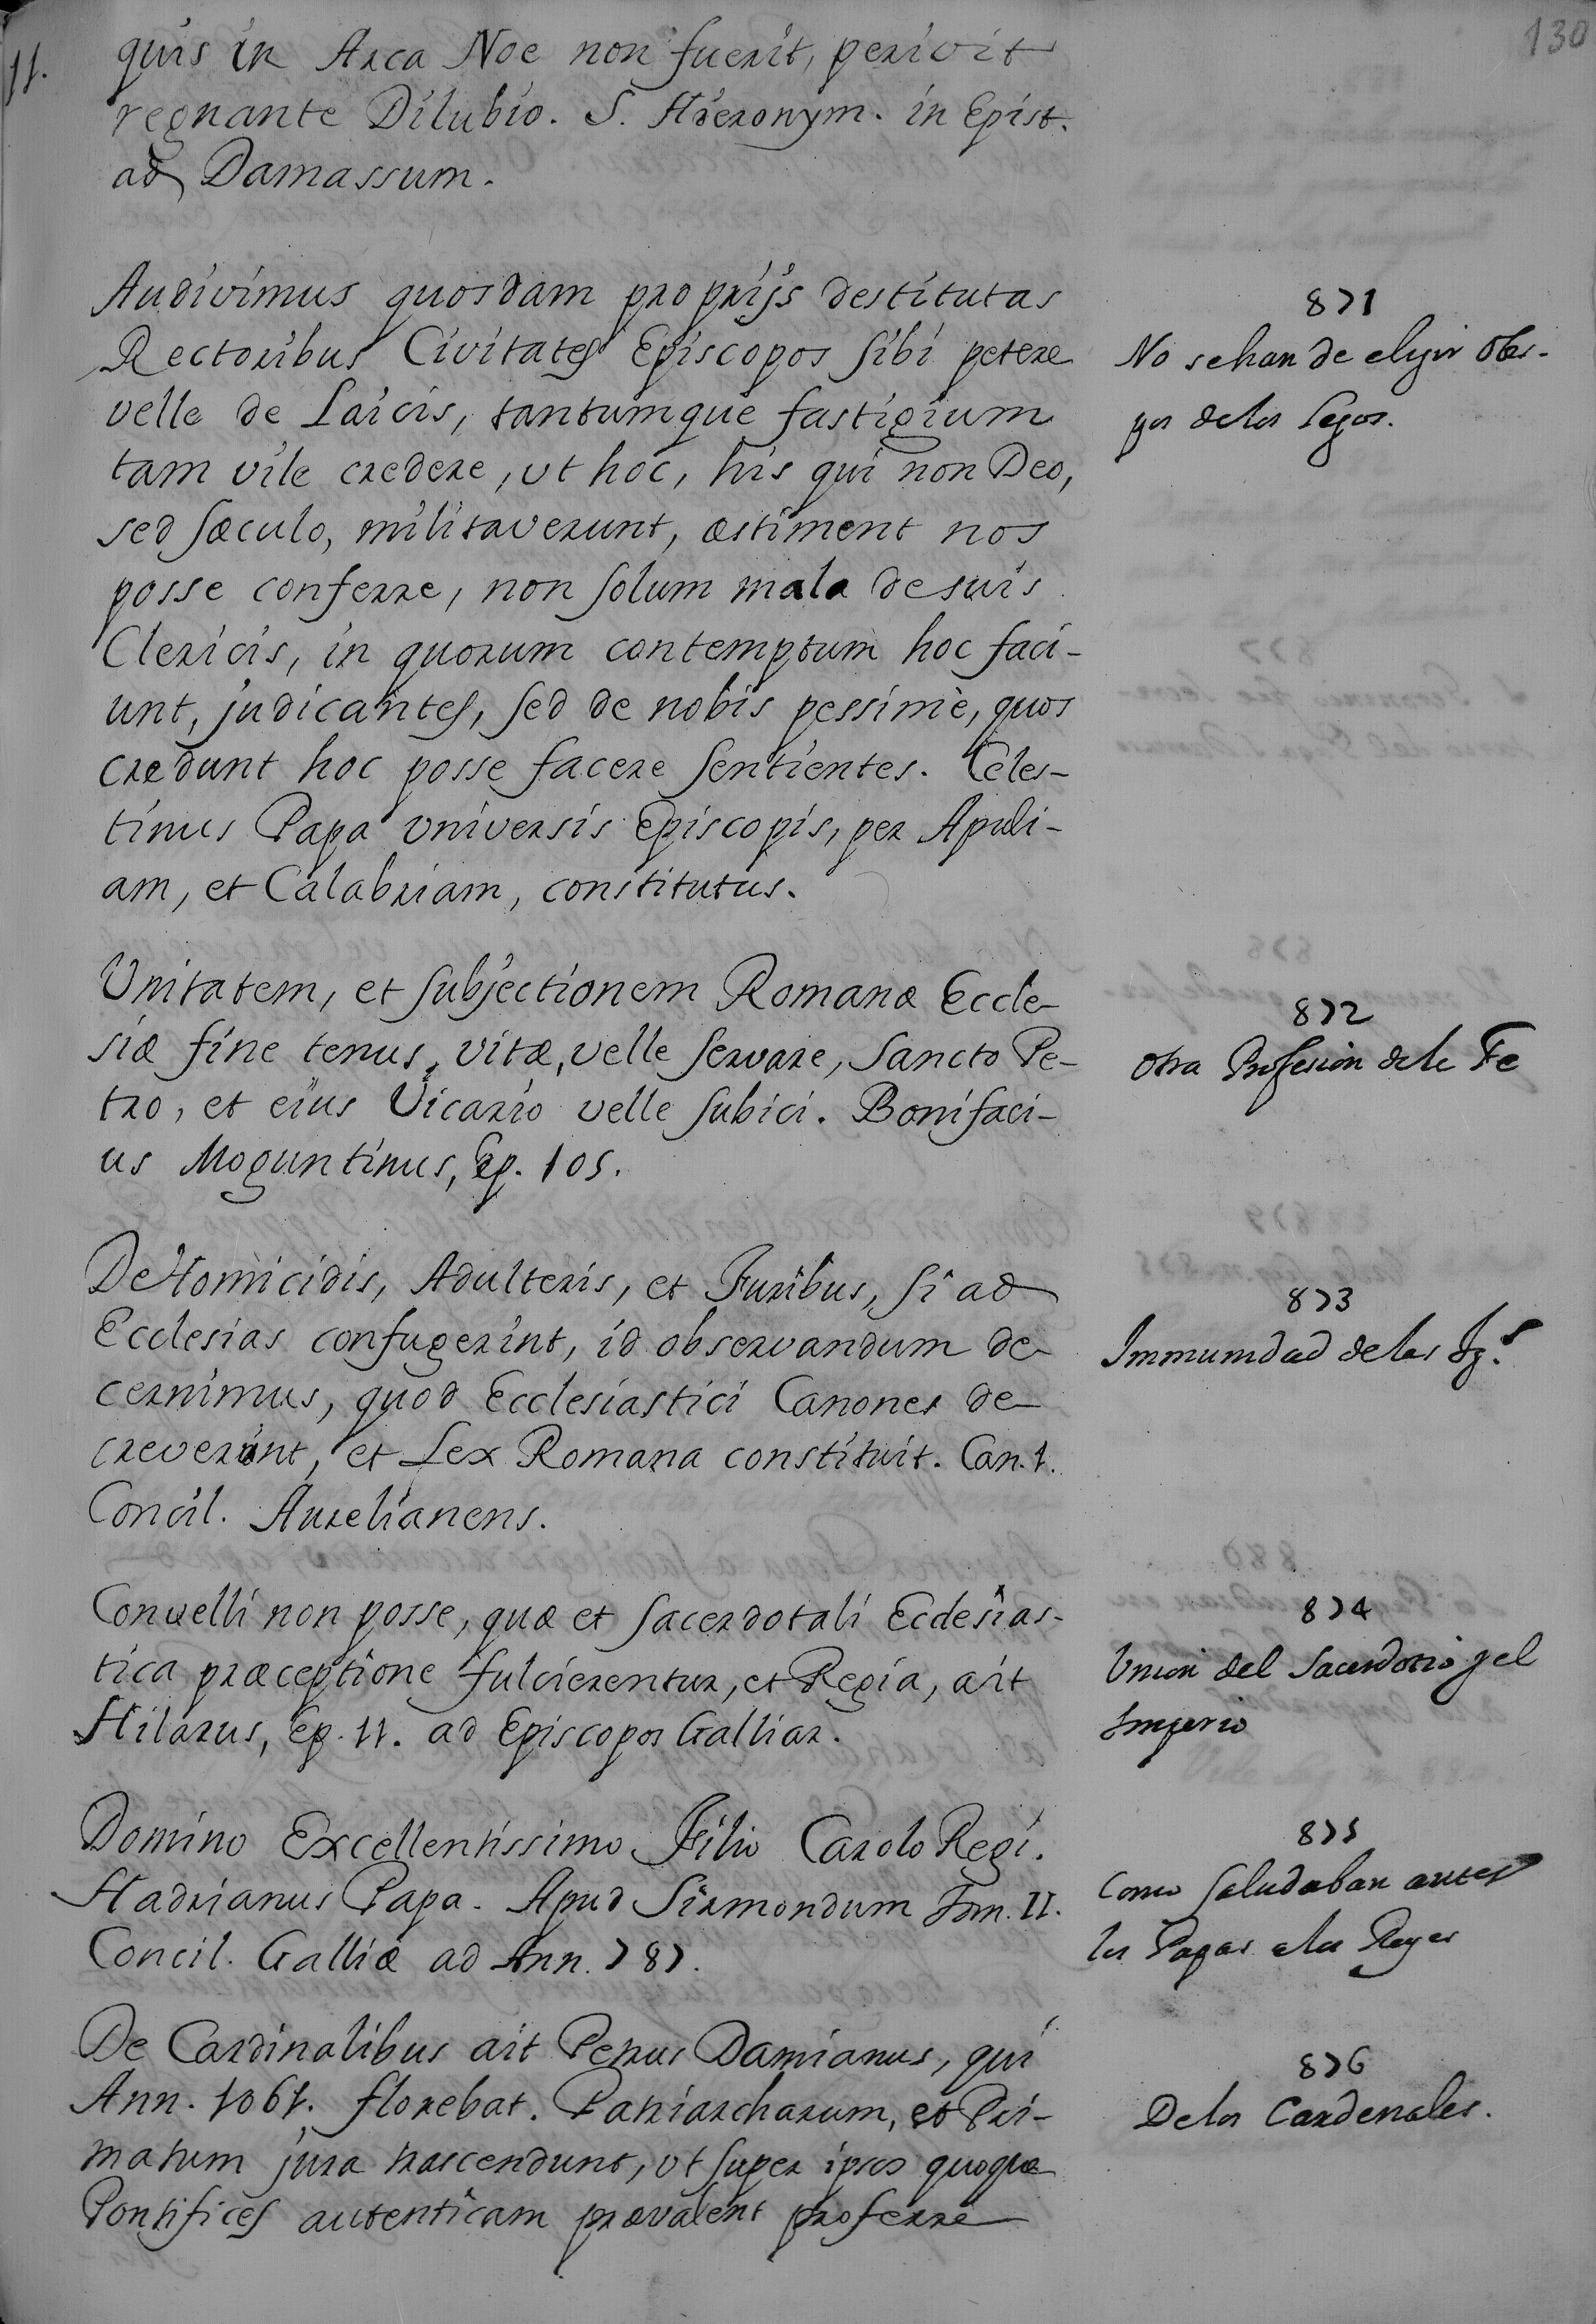 130
11.
quis in Arca Noe non fuerit, perivit
regnante Dilubio. S. Hieronym. in Epist.
ad Damassum.
Audivimus quosdam propriis destitutas
Rectoribus Civitates Episcopos sibi petere
velle de Laicis, tantumque fastigium
tam vile credere, ut hoc, his qui non Deo,
sed sæculo, militaverunt, æstiment nos
posse conferre, non solum mala de suis
Clericis, in quorum contemptum hoc faci-
unt, judicantes, sed de nobis pessimè, quos
credunt hoc posse facere sentientes. Celes-
tinus Papa universis Episcopis, per Apuli-
am, et Calabriam, constitutus.
871
No se han de elegir Obis-
pos de los Legos.
Unitatem, et subjectionem Romanæ Eccle-
siæ fine tenus, vitæ, velle servare, Sancto Pe-
tro, et eius Vicario velle subici. Bonifaci-
us Moguntinus, Ep. 105.
872
Otra Profesion de la Fe
De Homicidis, Adulteris, et Furibus, si ad
Ecclesias confugerint, id observandum de-
cernimus, quod Ecclesiastici Canones de-
creverunt, et Lex Romana constituit. Can. 1.
Concil. Aurelianens.
873
Immunidad de las Igs.
Convelli non posse, quæ et sacerdotali Ecclesias-
tica præceptione fulcierentur, et Regia, ait
Hilarus, Ep. 11. ad Episcopos Galliar.
874
Union del Sacerdotio y el
Imperio
Domino Excellentissimo Filio Carolo Regi.
Hadrianus Papa. Apud Sirmondum Tom. II.
Concil. Galliæ ad Ann. 787.
875
Como saludaban antes
los Papas a los Reyes
De Cardinalibus ait Petrus Damianus, qui
Ann. 1061. florebat. Patriarcharum, et Pri-
matum jura trascendunt, ut super ipsos quoque
Pontifices autenticam prævalent proferre
876
De los Cardenales.